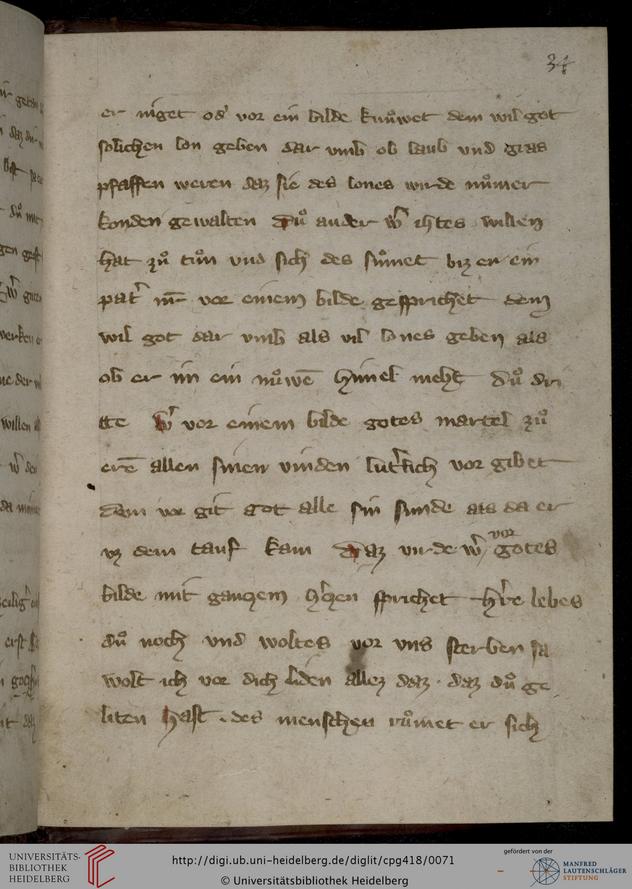 34
er niget od' vor ein bilde knuͦwet dem wil got
solichen lon geben dar vmb ob laub vnd gras
pfaffen weren daz sie des lones wirde nuͦmer
konden gewalten duͦ ander w' ihtes willen
hat zuͦ tuͦn vnd sich des suͦmet biz er ein
pat' nr vor einem bilde gesprichet dem
wil got dar vmb als vil lones geben als
ob er im ein nuͦwē himel meht duͦ dri
tte w' vor einem bilde gotes martel zuͦ
erē allen sinen vinden lut'lich vor gibet
dem vor git got alle sin sunde als da er
vz dem tauf kam daz vir de w' vor gotes
bilde mit ganczem h'czen sprichet h're lebes
duͦ noch vnd woltes vor vns sterben sa
wolt ich vor dich liden allez daz · daz duͦ ge
liten hast · des menschen ruͦmet er sich
UNIVERSITÄTS-
BIBLIOTHEK
HEIDELBERG
http://digi.ub.uni-heidelberg.de/diglit/cpg418/0071
© Universitätsbibliothek Heidelberg
gefördert von der
MANFRED
LAUTENSCHLÄGER
STIFTUNG